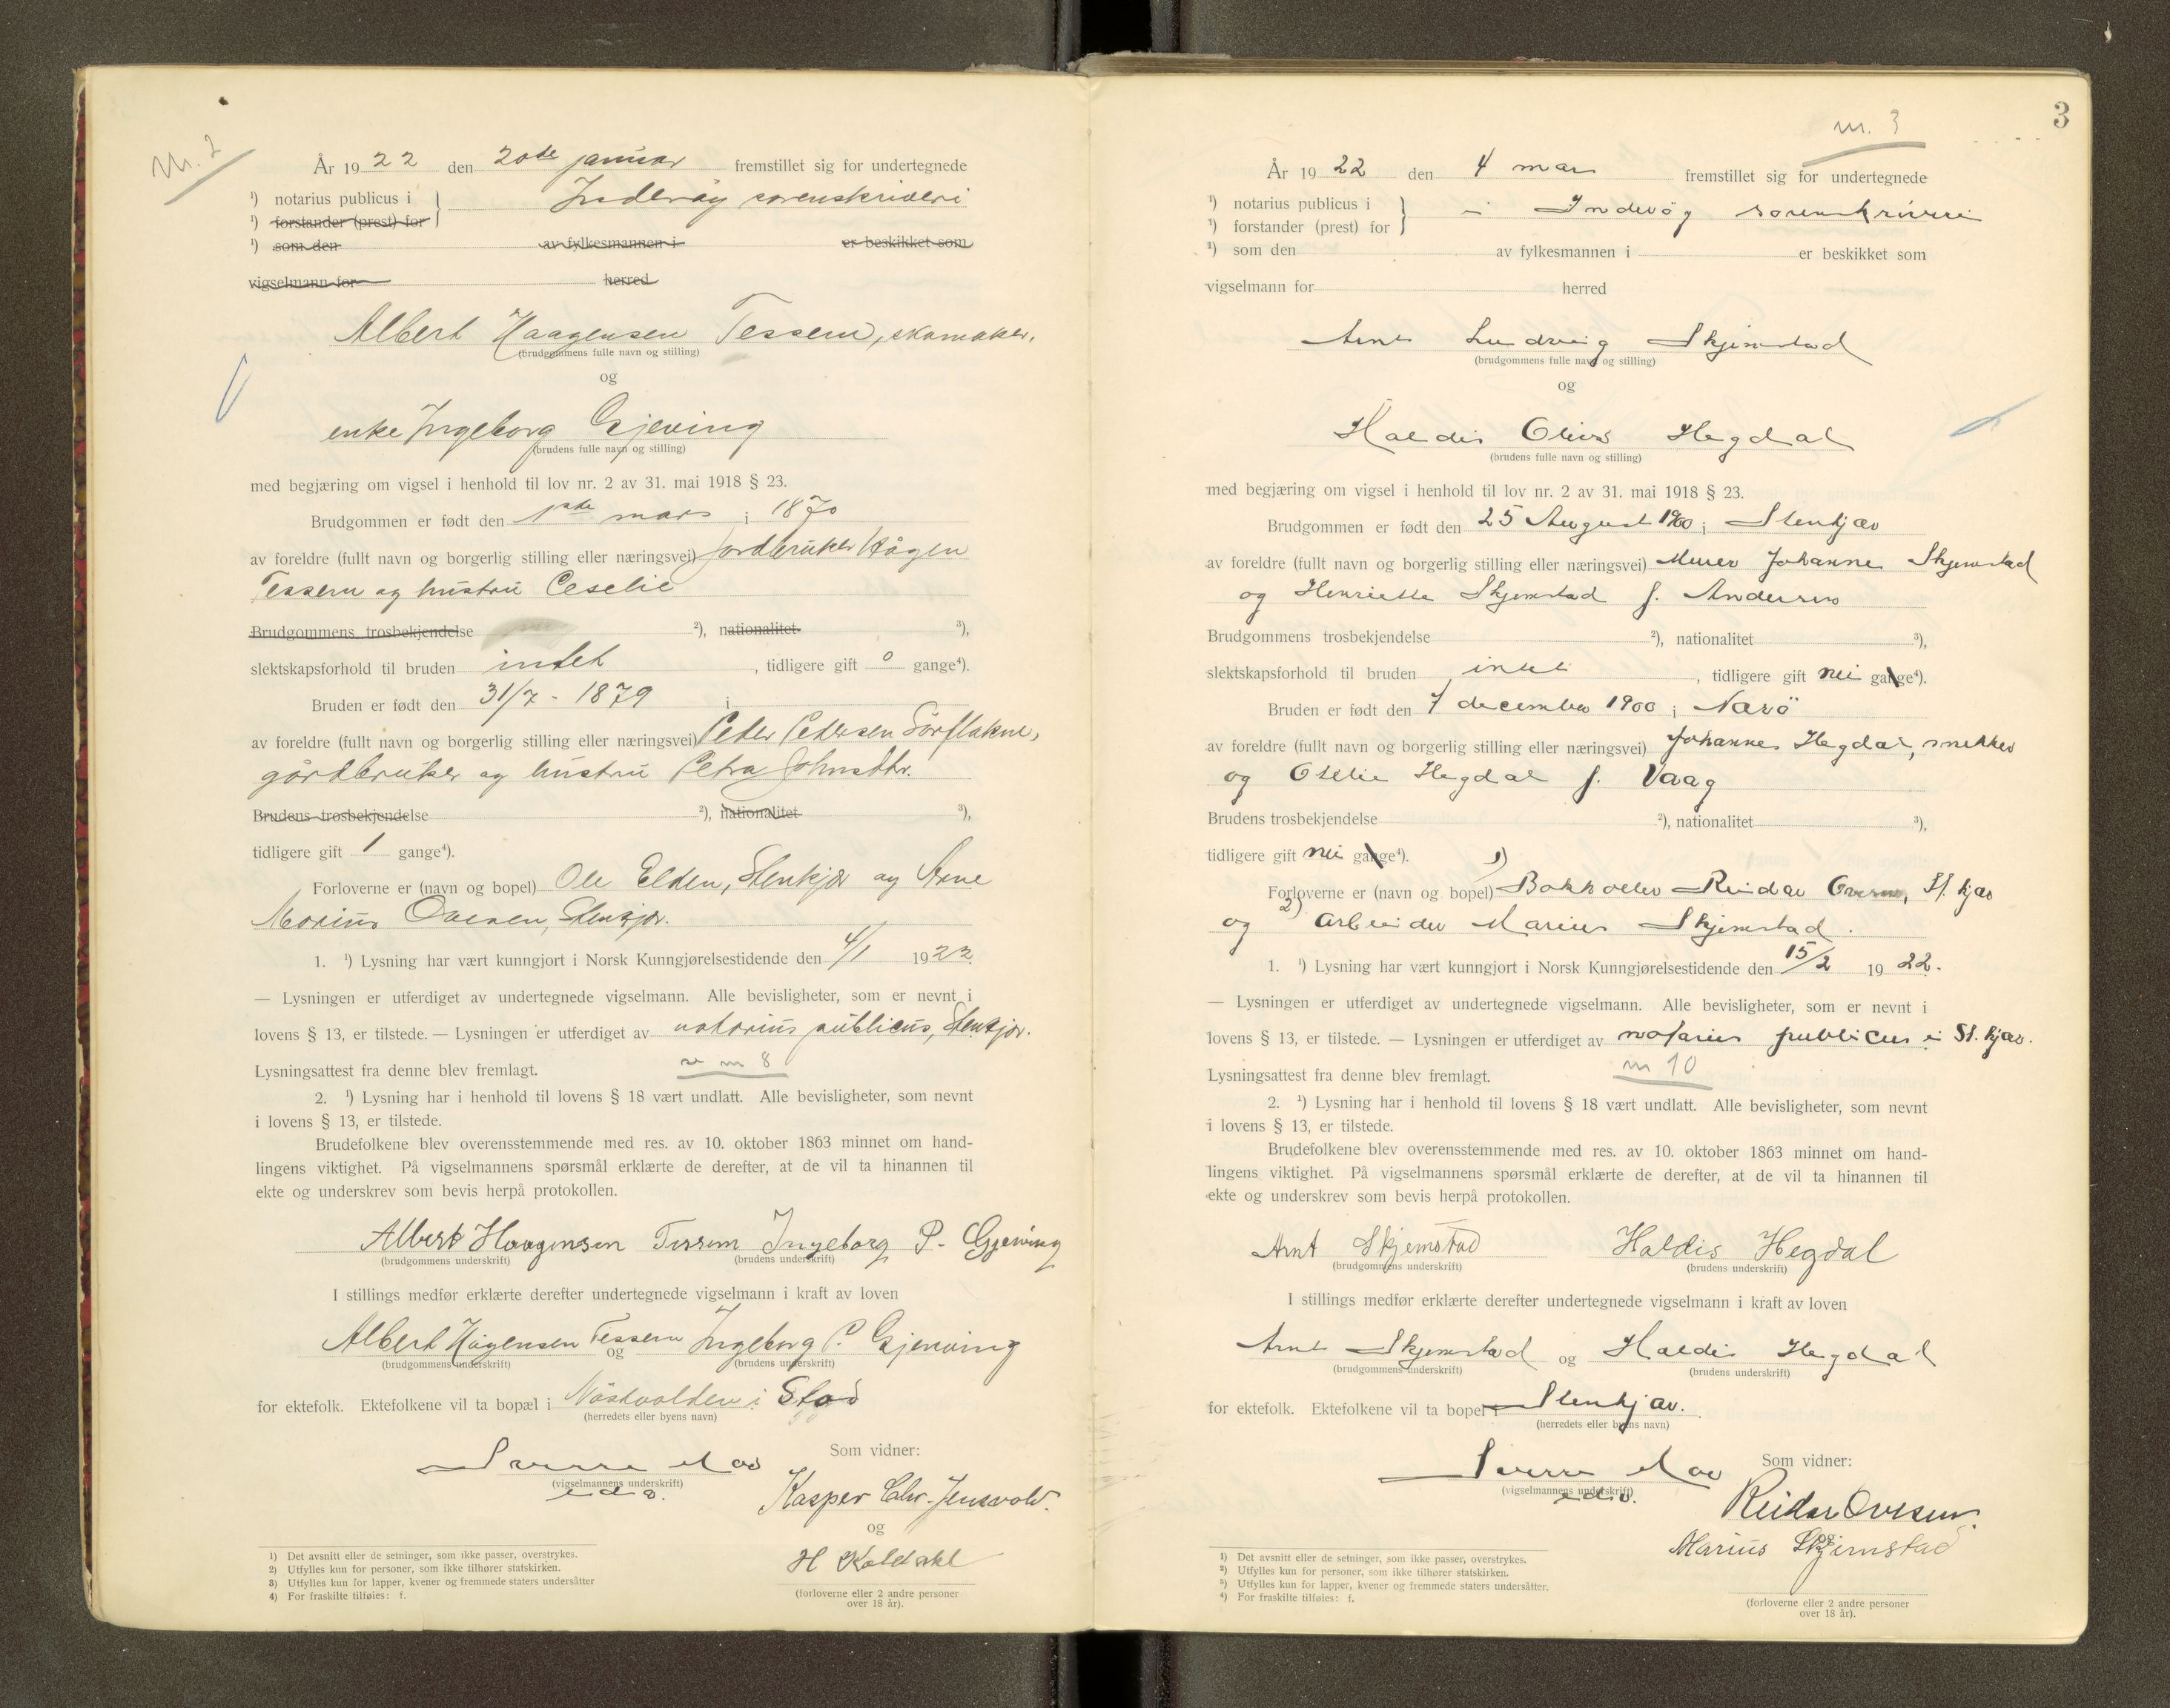 Nr. 2
År 1922 den 20de januar fremstillet sig for undertegnede
¹) notarius publicus i Inderöy sorenskriveri
¹) forstander (prest) for
¹) som den av fylkesmannen i er beskikket som
vigselmann for herred
Albert Haagensen Tessem, skomaker.
(brudgommens fulle navn og stilling)
og
enke Ingeborg Gjeving
(brudens fulle navn og stilling)
med begjæring om vigsel i henhold til lov nr. 2 av 31. mai 1918 § 23.
Brudgommen er født den 1ste mars i 1870
av foreldre (fullt navn og borgerlig stilling eller næringsvei) jordbruker Hågen
Tessem og hustru Ceselie
Brudgommens trosbekjendelse ²), nationalitet ³),
slektskapsforhold til bruden intet, tidligere gift 0 gange⁴).
Bruden er født den 31/7 - 1879 i
av foreldre (fullt navn og borgerlig stilling eller næringsvei) Peter Petersen Sörflakne,
gårdbruker og hustru Petra Johnsdtr.
Brudens trosbekjendelse ²), nationalitet ³),
tidligere gift 1 gange⁴).
Forloverne er (navn og bopel) Ole Elden, Stenkjær og Arne
Morius Ovesen, Stenkjær.
1. ¹) Lysning har vært kunngjort i Norsk Kunngjørelsestidende den 4/1 1922.
— Lysningen er utferdiget av undertegnede vigselmann. Alle bevisligheter, som er nevnt i
lovens § 13, er tilstede. — Lysningen er utferdiget av notarius publicus, Stenkjær.
Lysningsattest fra denne blev fremlagt. se nr 8
2. ¹) Lysning har i henhold til lovens § 18 vært undlatt. Alle bevisligheter, som nevnt
i lovens § 13, er tilstede.
Brudefolkene blev overensstemmende med res. av 10. oktober 1863 minnet om hand-
lingens viktighet. På vigselmannens spørsmål erklærte de derefter, at de vil ta hinannen til
ekte og underskrev som bevis herpå protokollen.
Albert Haagensen Tessem Ingeborg P. Gjeving
(brudgommens underskrift) (brudens underskrift)
I stillings medfør erklærte derefter undertegnede vigselmann i kraft av loven
Albert Hågensen Tessem og Ingeborg P. Gjerving
(brudgommens underskrift) (brudens underskrift)
for ektefolk. Ektefolkene vil ta bopæl i Nöstvolden i Stod
(herredets eller byens navn)
Som vidner:
Sverre Moe
(vigselmannens underskrift)
eds.
Kasper Chr. Jensvold.
og
H Koldahl
(forloverne eller 2 andre personer
over 18 år).
1) Det avsnitt eller de setninger, som ikke passer, overstrykes.
2) Utfylles kun for personer, som ikke tilhører statskirken.
3) Utfylles kun for lapper, kvener og fremmede staters undersåtter
4) For fraskilte tilføies: f.
3
nr. 3
År 1922 den 4 mars fremstillet sig for undertegnede
¹) notarius publicus i i Inderöy sorenskriveri
¹) forstander (prest) for
¹) som den av fylkesmannen i er beskikket som
vigselmann for herred
Arnt Ludvig Skjemstad
(brudgommens fulle navn og stilling)
og
Haldis Hegdal
(brudens fulle navn og stilling)
med begjæring om vigsel i henhold til lov nr. 2 av 31. mai 1918 § 23.
Brudgommen er født den 25 August 1900 i Stenkjær
av foreldre (fullt navn og borgerlig stilling eller næringsvei) Murer Johannes Skjemstad
og Henriette Skjemstad f. Andersen
Brudgommens trosbekjendelse ²), nationalitet ³),
slektskapsforhold til bruden intet, tidligere gift nei gange⁴).
Bruden er født den 7 december 1900 i Nærö
av foreldre (fullt navn og borgerlig stilling eller næringsvei) Johannes Hegdal, snekker
og Otelie Hegdal f. Vaag
Brudens trosbekjendelse ²), nationalitet ³),
tidligere gift nei gange⁴).
Forloverne er (navn og bopel) 1) Bokholder Reidar Ovesen, St. kjær
og 2) Arbeider Marius Skjemstad.
1. ¹) Lysning har vært kunngjort i Norsk Kunngjørelsestidende den 15/2 1922.
— Lysningen er utferdiget av undertegnede vigselmann. Alle bevisligheter, som er nevnt i
lovens § 13, er tilstede. — Lysningen er utferdiget av notarius publicus i St. kjær.
Lysningsattest fra denne blev fremlagt. nr 10
2. ¹) Lysning har i henhold til lovens § 18 vært undlatt. Alle bevisligheter, som nevnt
i lovens § 13, er tilstede.
Brudefolkene blev overensstemmende med res. av 10. oktober 1863 minnet om hand-
lingens viktighet. På vigselmannens spørsmål erklærte de derefter, at de vil ta hinannen til
ekte og underskrev som bevis herpå protokollen.
Arnt Skjemstad Haldis Hegdal
(brudgommens underskrift) (brudens underskrift)
I stillings medfør erklærte derefter undertegnede vigselmann i kraft av loven
Arnt Skjemstad og Haldis Hegdal
(brudgommens underskrift) (brudens underskrift)
for ektefolk. Ektefolkene vil ta bopel i Stenkjær.
(herredets eller byens navn)
Som vidner:
Sverre Moe
(vigselmannens underskrift)
eds.
Reidar Ovesen.
og
Marius Skjemstad
(forloverne eller 2 andre personer
over 18 år).
¹) Det avsnitt eller de setninger, som ikke passer, overstrykes.
²) Utfylles kun for personer, som ikke tilhører statskirken.
³) Utfylles kun for lapper, kvener og fremmede staters undersåtter.
⁴) For fraskilte tilføies: f.